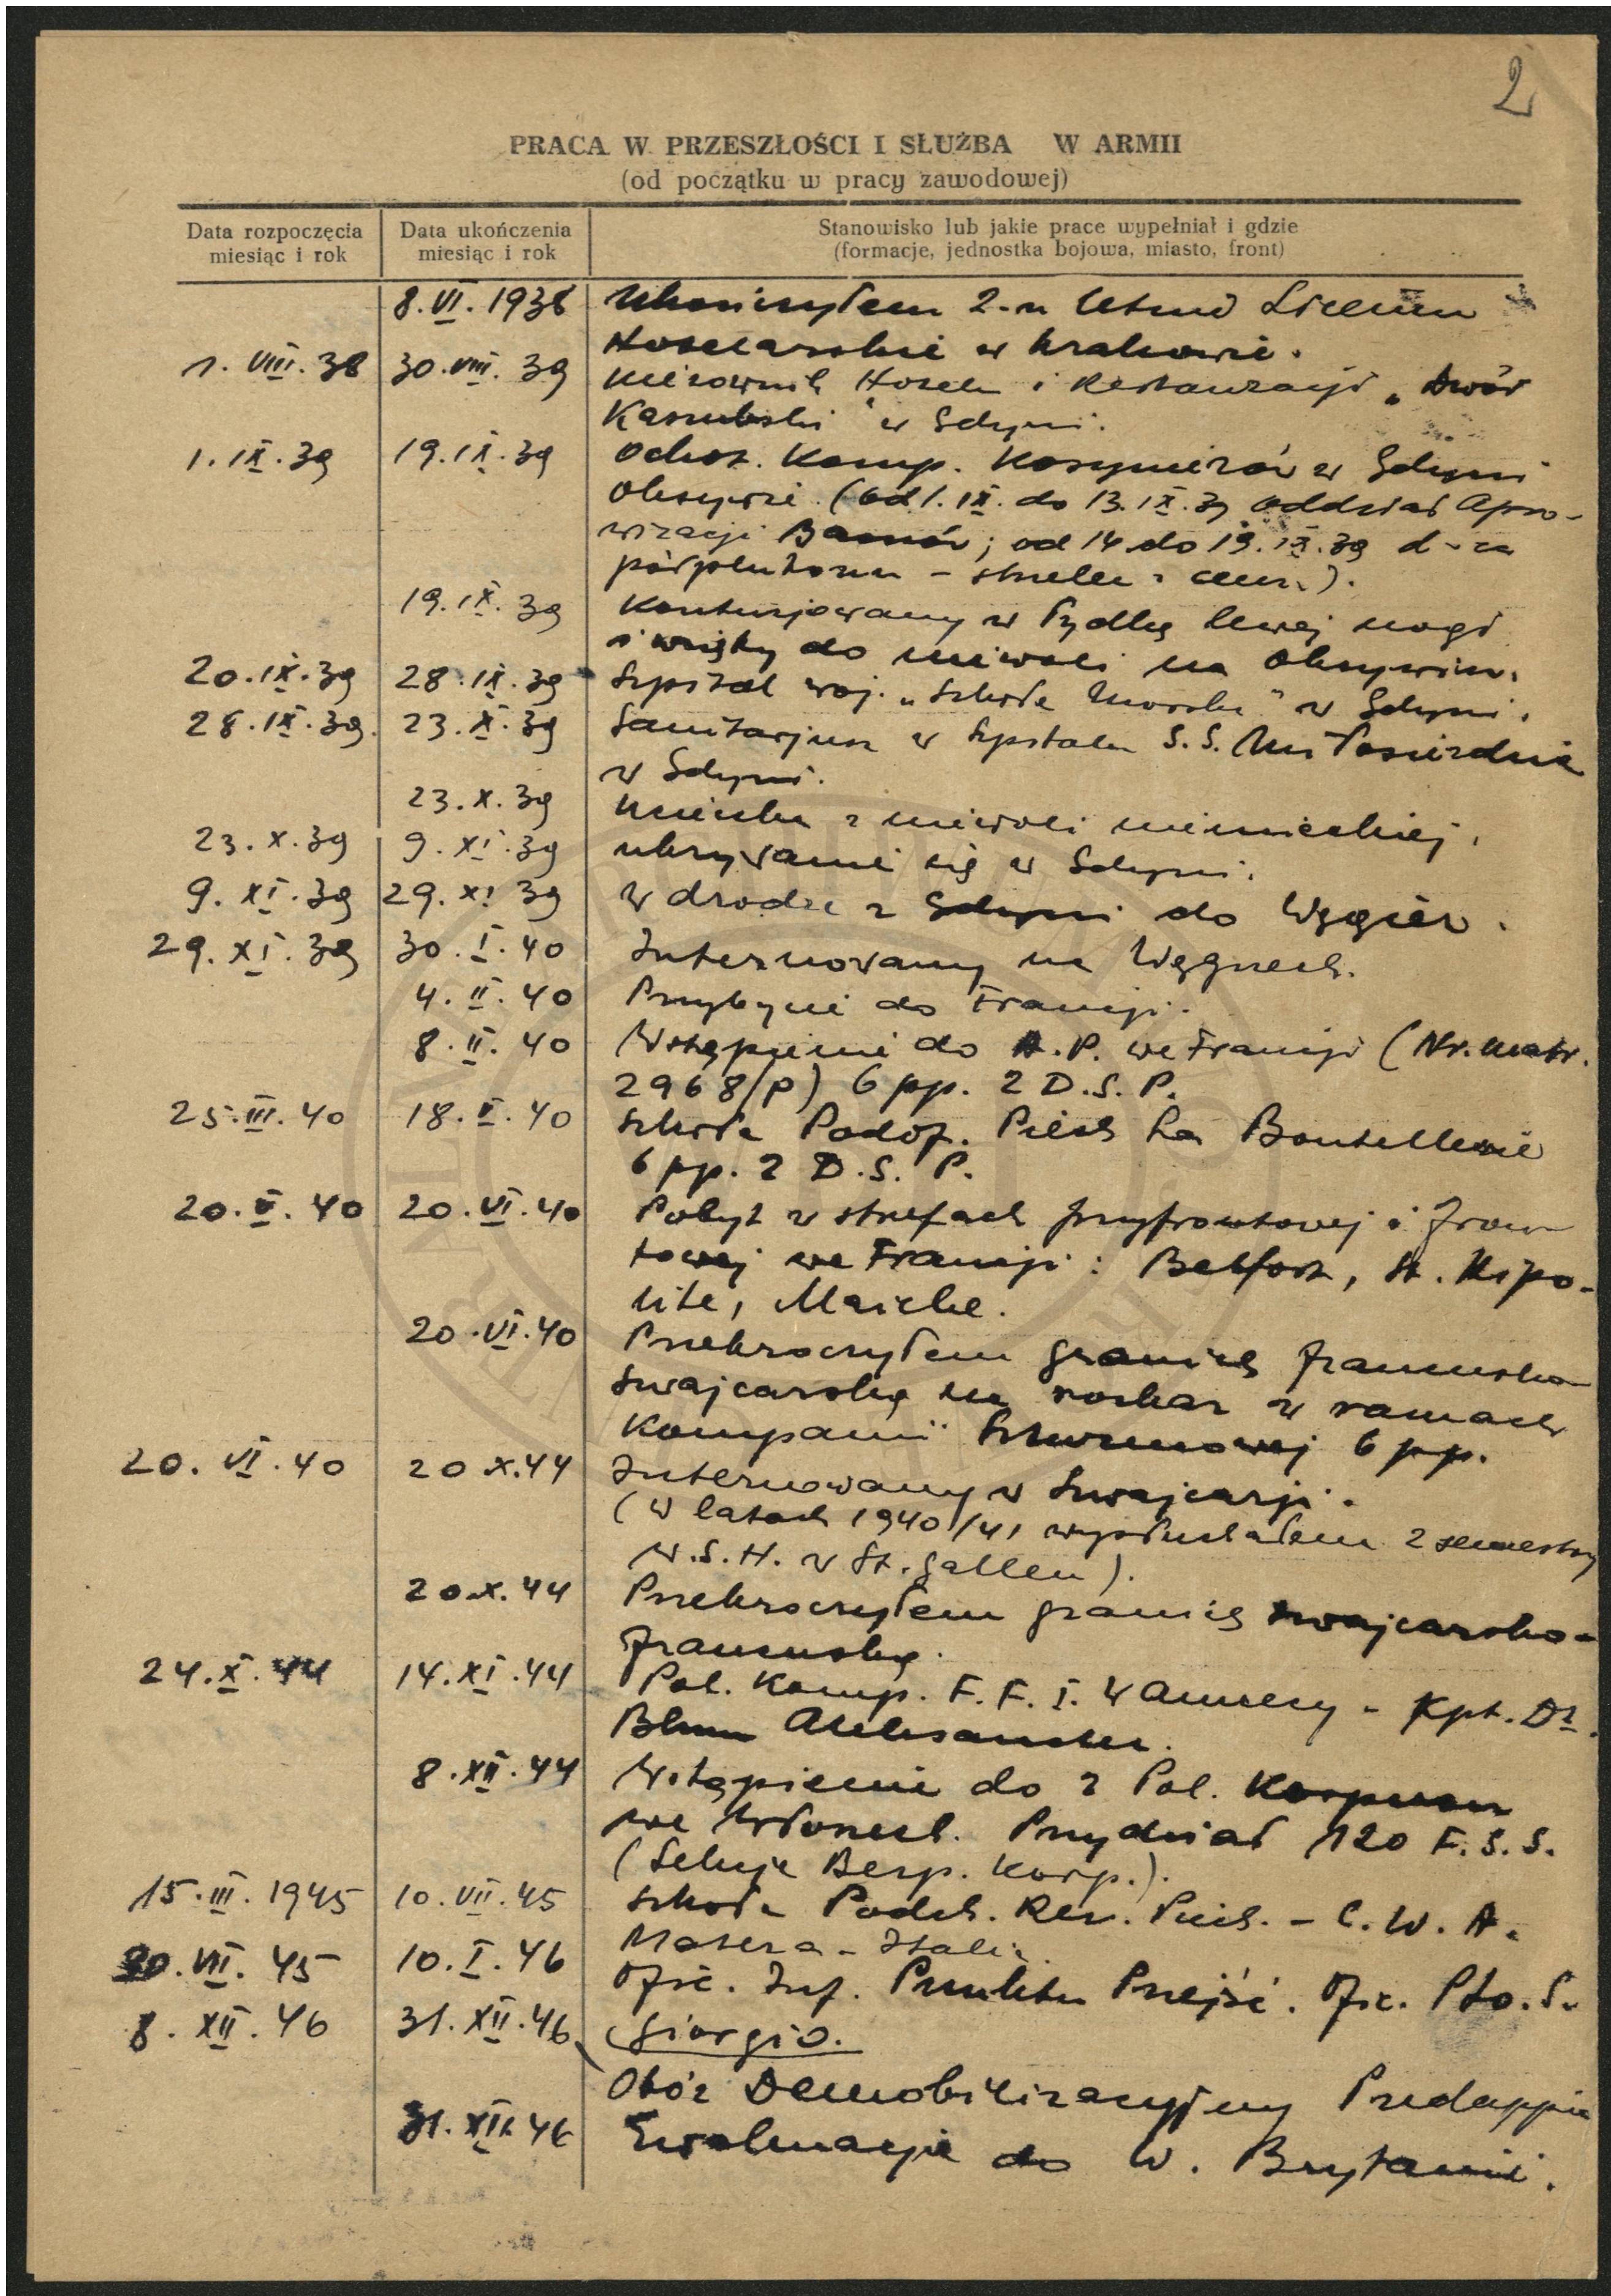 2
PRACA W PRZESZŁOŚCI I SŁUŻBA W ARMII
(od początku w pracy zawodowej)
Data rozpoczęcia miesiąc i rok | Data ukończenia miesiąc i rok | Stanowisko lub jakie prace wypełniał i gdzie (formacje, jednostka bojowa, miasto, front)
8.VI.1938 Ukończyłem 2-u letnie Liceum
Hotelarskie w Krakowie.
1.VIII.38 30.VIII.39 Kierownik Hotelu i Restauracji „Dwór
Kaszubski" w Gdyni.
1.IX.39 19.IX.39 Ochot. Komp. Kosynierów w Gdyni
Oksywie. (od 1.IX. do 13.IX.39 oddział Apro-
wizacji ; od 14 do 19.IX.39 d-ca
półplutonu - ).
19.IX.39 Kontuzjowany w łydkę lewej nogi
i wzięty do niewoli na Oksywiu.
20.IX.39 28.IX.39 Szpital woj. „Szkoła Morska" w Gdyni.
28.IX.39. 23.X.39 Sanitarjusz w Szpitalu S.S. Miłosierdzia
w Gdyni.
23.X.39 Ucieczka z niewoli niemieckiej.
23.X.39 9.XI.39 ukrywanie się w Gdyni.
9.XI.39 29.XI 39 w drodze z Gdyni do Węgier.
29.XI.39 30.I.40 Internowany na Węgrzech.
4.II.40 Przybycie do Francji.
8.II.40 Wstąpienie do A.P. we Francji (Nr. matr.
2968/P) 6 pp. 2 D.S.P.
25.III.40 18.V.40 Szkoła Podof. Piech La Boutellerie
6 pp. 2 D.S.P.
20.V.40 20.VI.40 Pobyt w strefach przyfrontowej i fron
towej we Francji: Belfort, St. Hipo-
lite, Maiche.
20.VI.40 Przekroczyłem granicę francusko
szwajcarską na rozkaz w ramach
Kompanii Szturmowej 6 pp.
20.VI.40 20 X.44 Internowany w Szwajcarji.
(w latach 1940/41 wysłuchałem 2 semestry
W.S.H. w St. Gallen).
20.X.44 Przekroczyłem granicę szwajcarsko-
francuską.
24.X.44 14.XI.44 Pol. Komp. F.F.I. w Annecy - Kpt. Dr.
Blum Aleksander.
8.XII.44 Wstąpienie do 2 Pol. Korpusu
we Włoszech. Przydział 120 F.S.S.
(Sekcja Bezp. Korp.).
15.III.1945 10.VII.45 Szkoła Podch. Rez. Piech. - C.W.A.
Matera - Italia
20.VII.45 10.I.46 Ofic. Inf. Punktu Przejść. Ofic. Pto. S.
8.XII.46 31.XII.46 Giorgio.
Obóz Demobilizacyjny Predappio
31.XII.46 Ewakuacja do W. Brytanii.